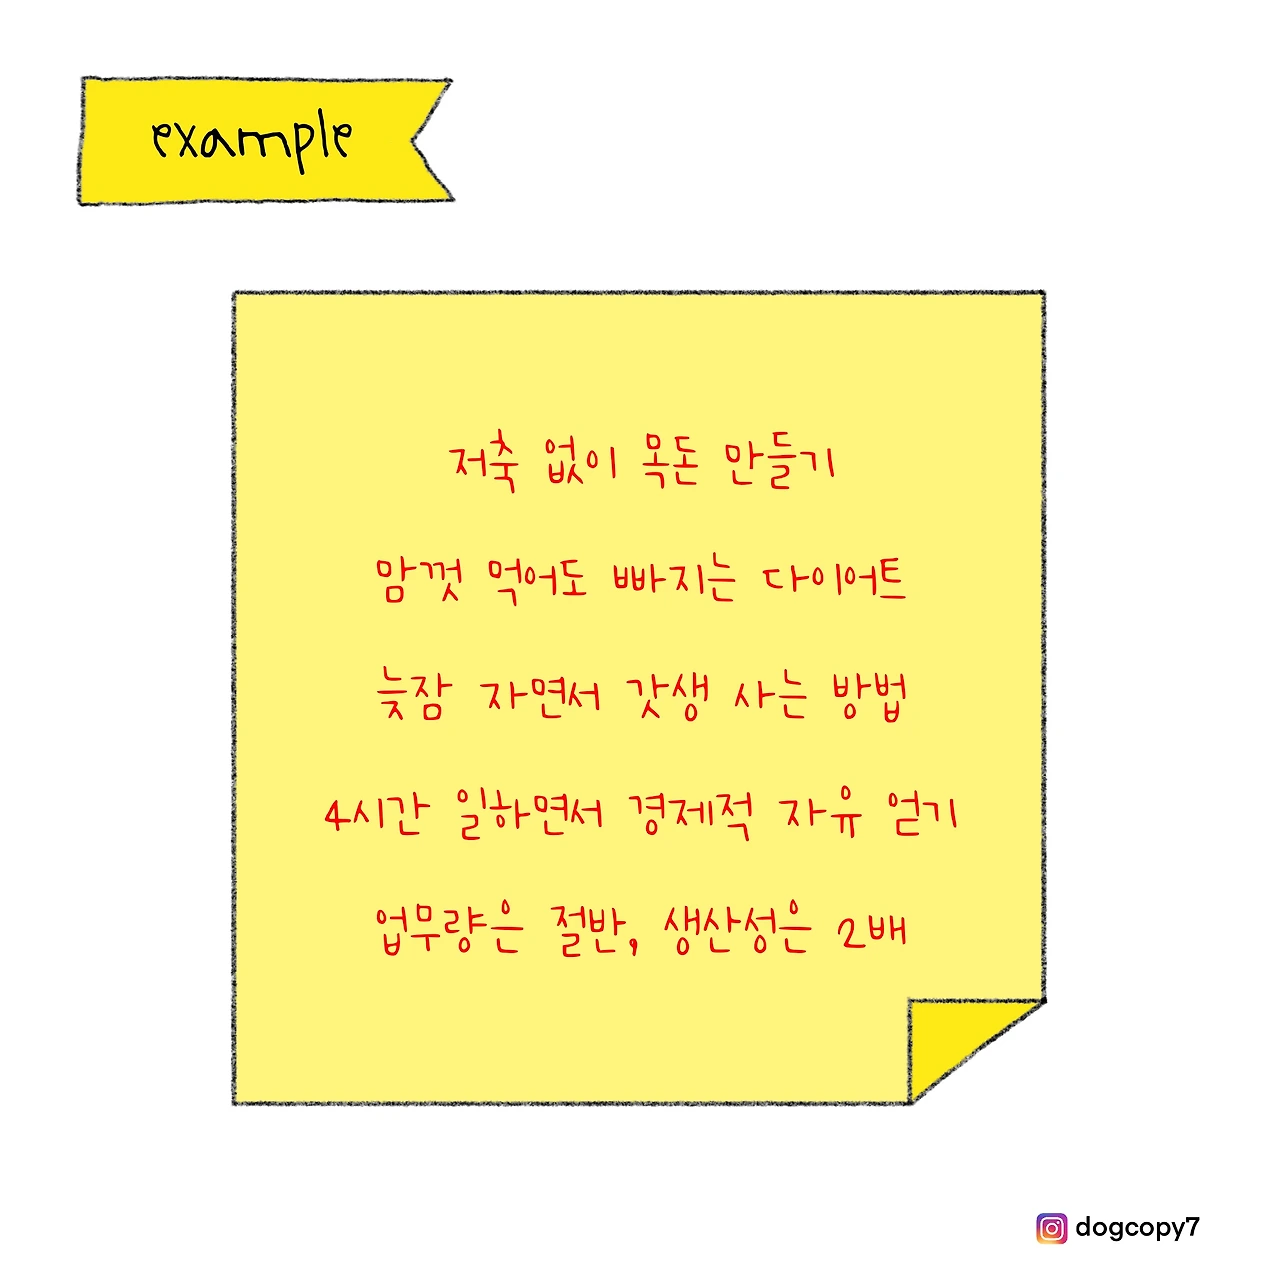 example
저축 없이 목돈 만들기
맘껏 먹어도 빠지는 다이어트
늦잠 자면서 갓생 사는 방법
4시간 일하면서 경제적 자유 얻기
업무량은 절반, 생산성은 2배
dogcopy7